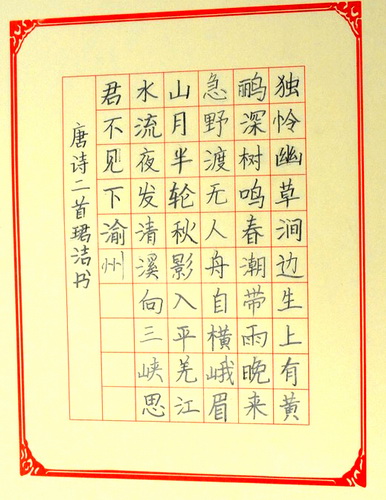 独怜幽草涧边生上有黄
鹂深树鸣春潮带雨晚来
急野渡无人舟自横峨眉
山月半轮秋影入平羌江
水流夜发清溪向三峡思
君不见下渝州
唐诗二首珺洁书